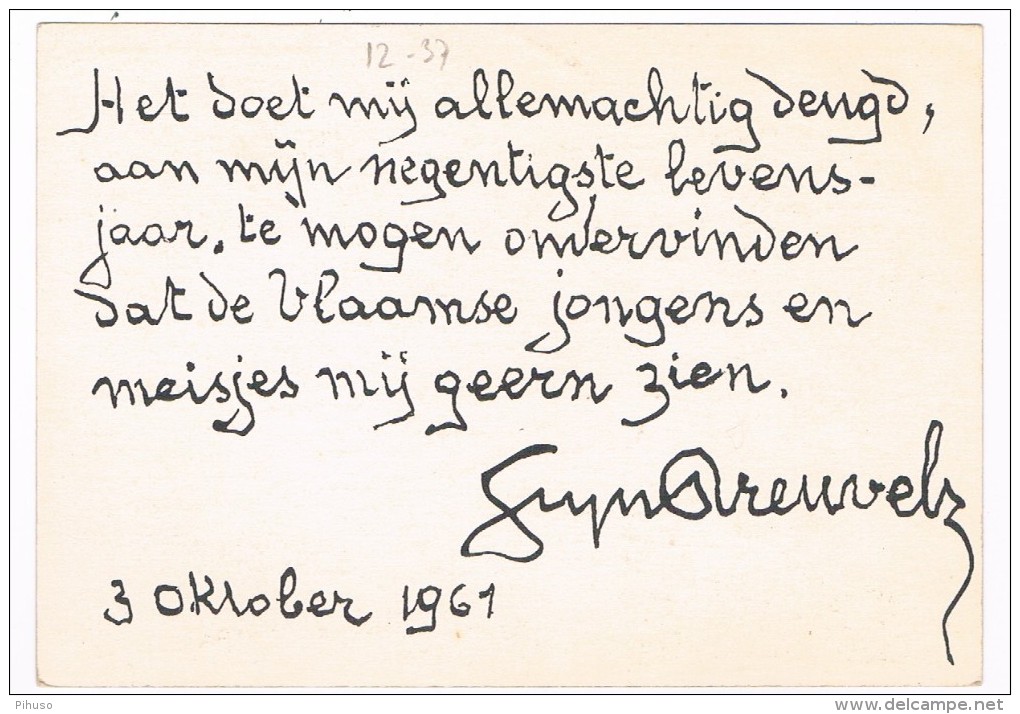 12-37
Het doet mij allemachtig deugd,
aan mijn negentigste levens-
jaar, te mogen ondervinden
dat de Vlaamse jongens en
meisjes mij geern zien.
Stijn Streuvels
3 Oktober 1961
Pihuso
www.delcampe.net